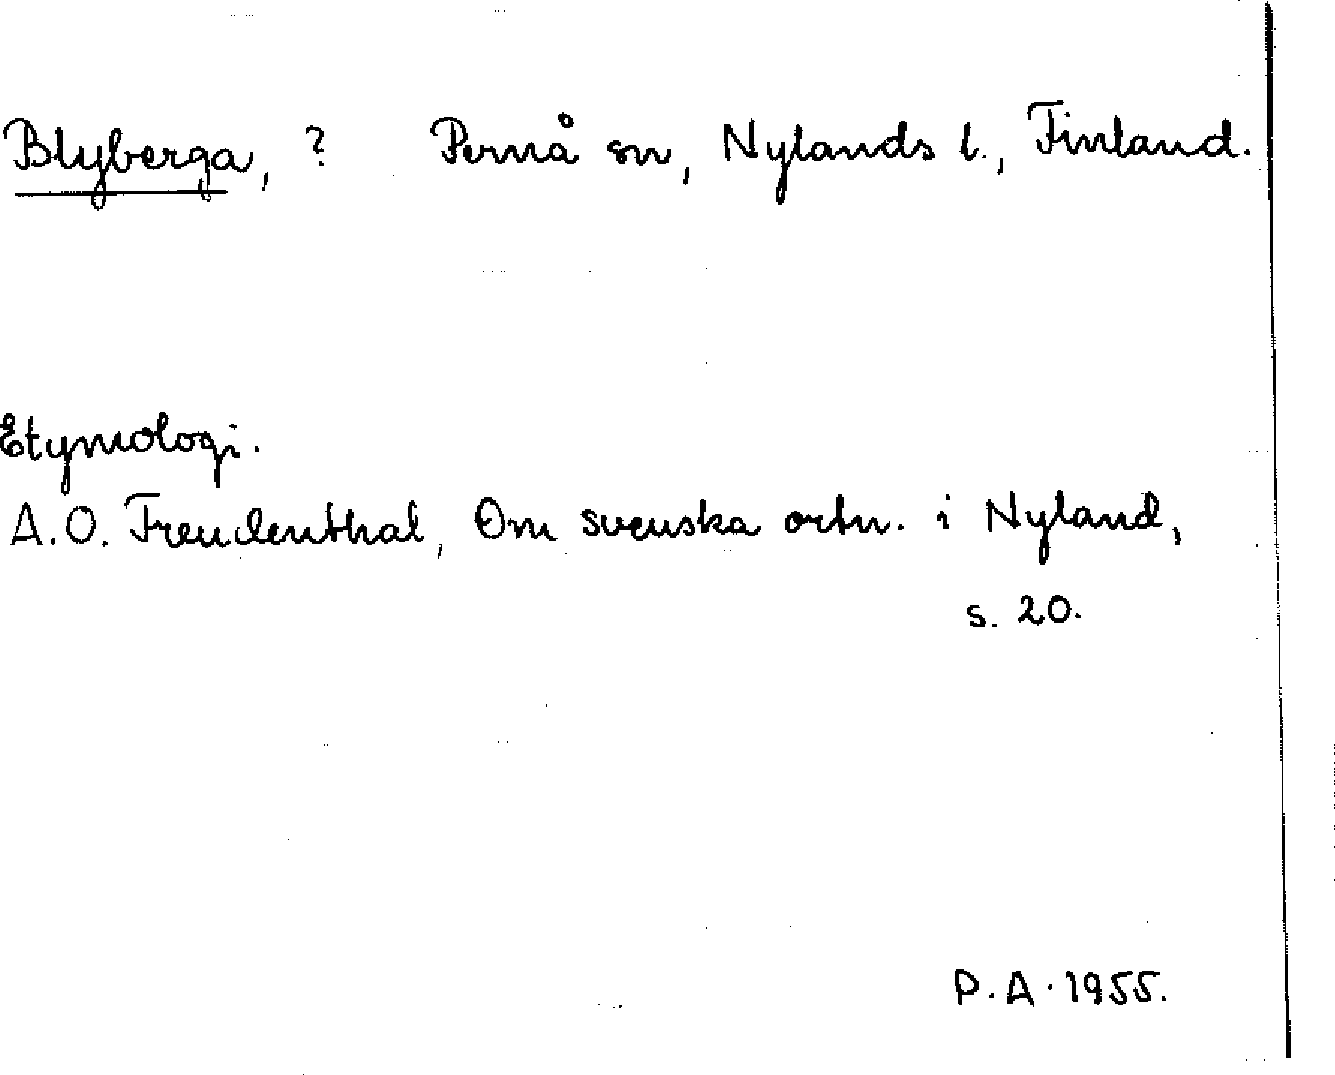 Blyberga, ? Pernå sn, Nylands l., Finland.
Etymologi.
A.O. Freudenthal, Om svenska ortn. i Nyland,
s. 20.
P.A. 1955.